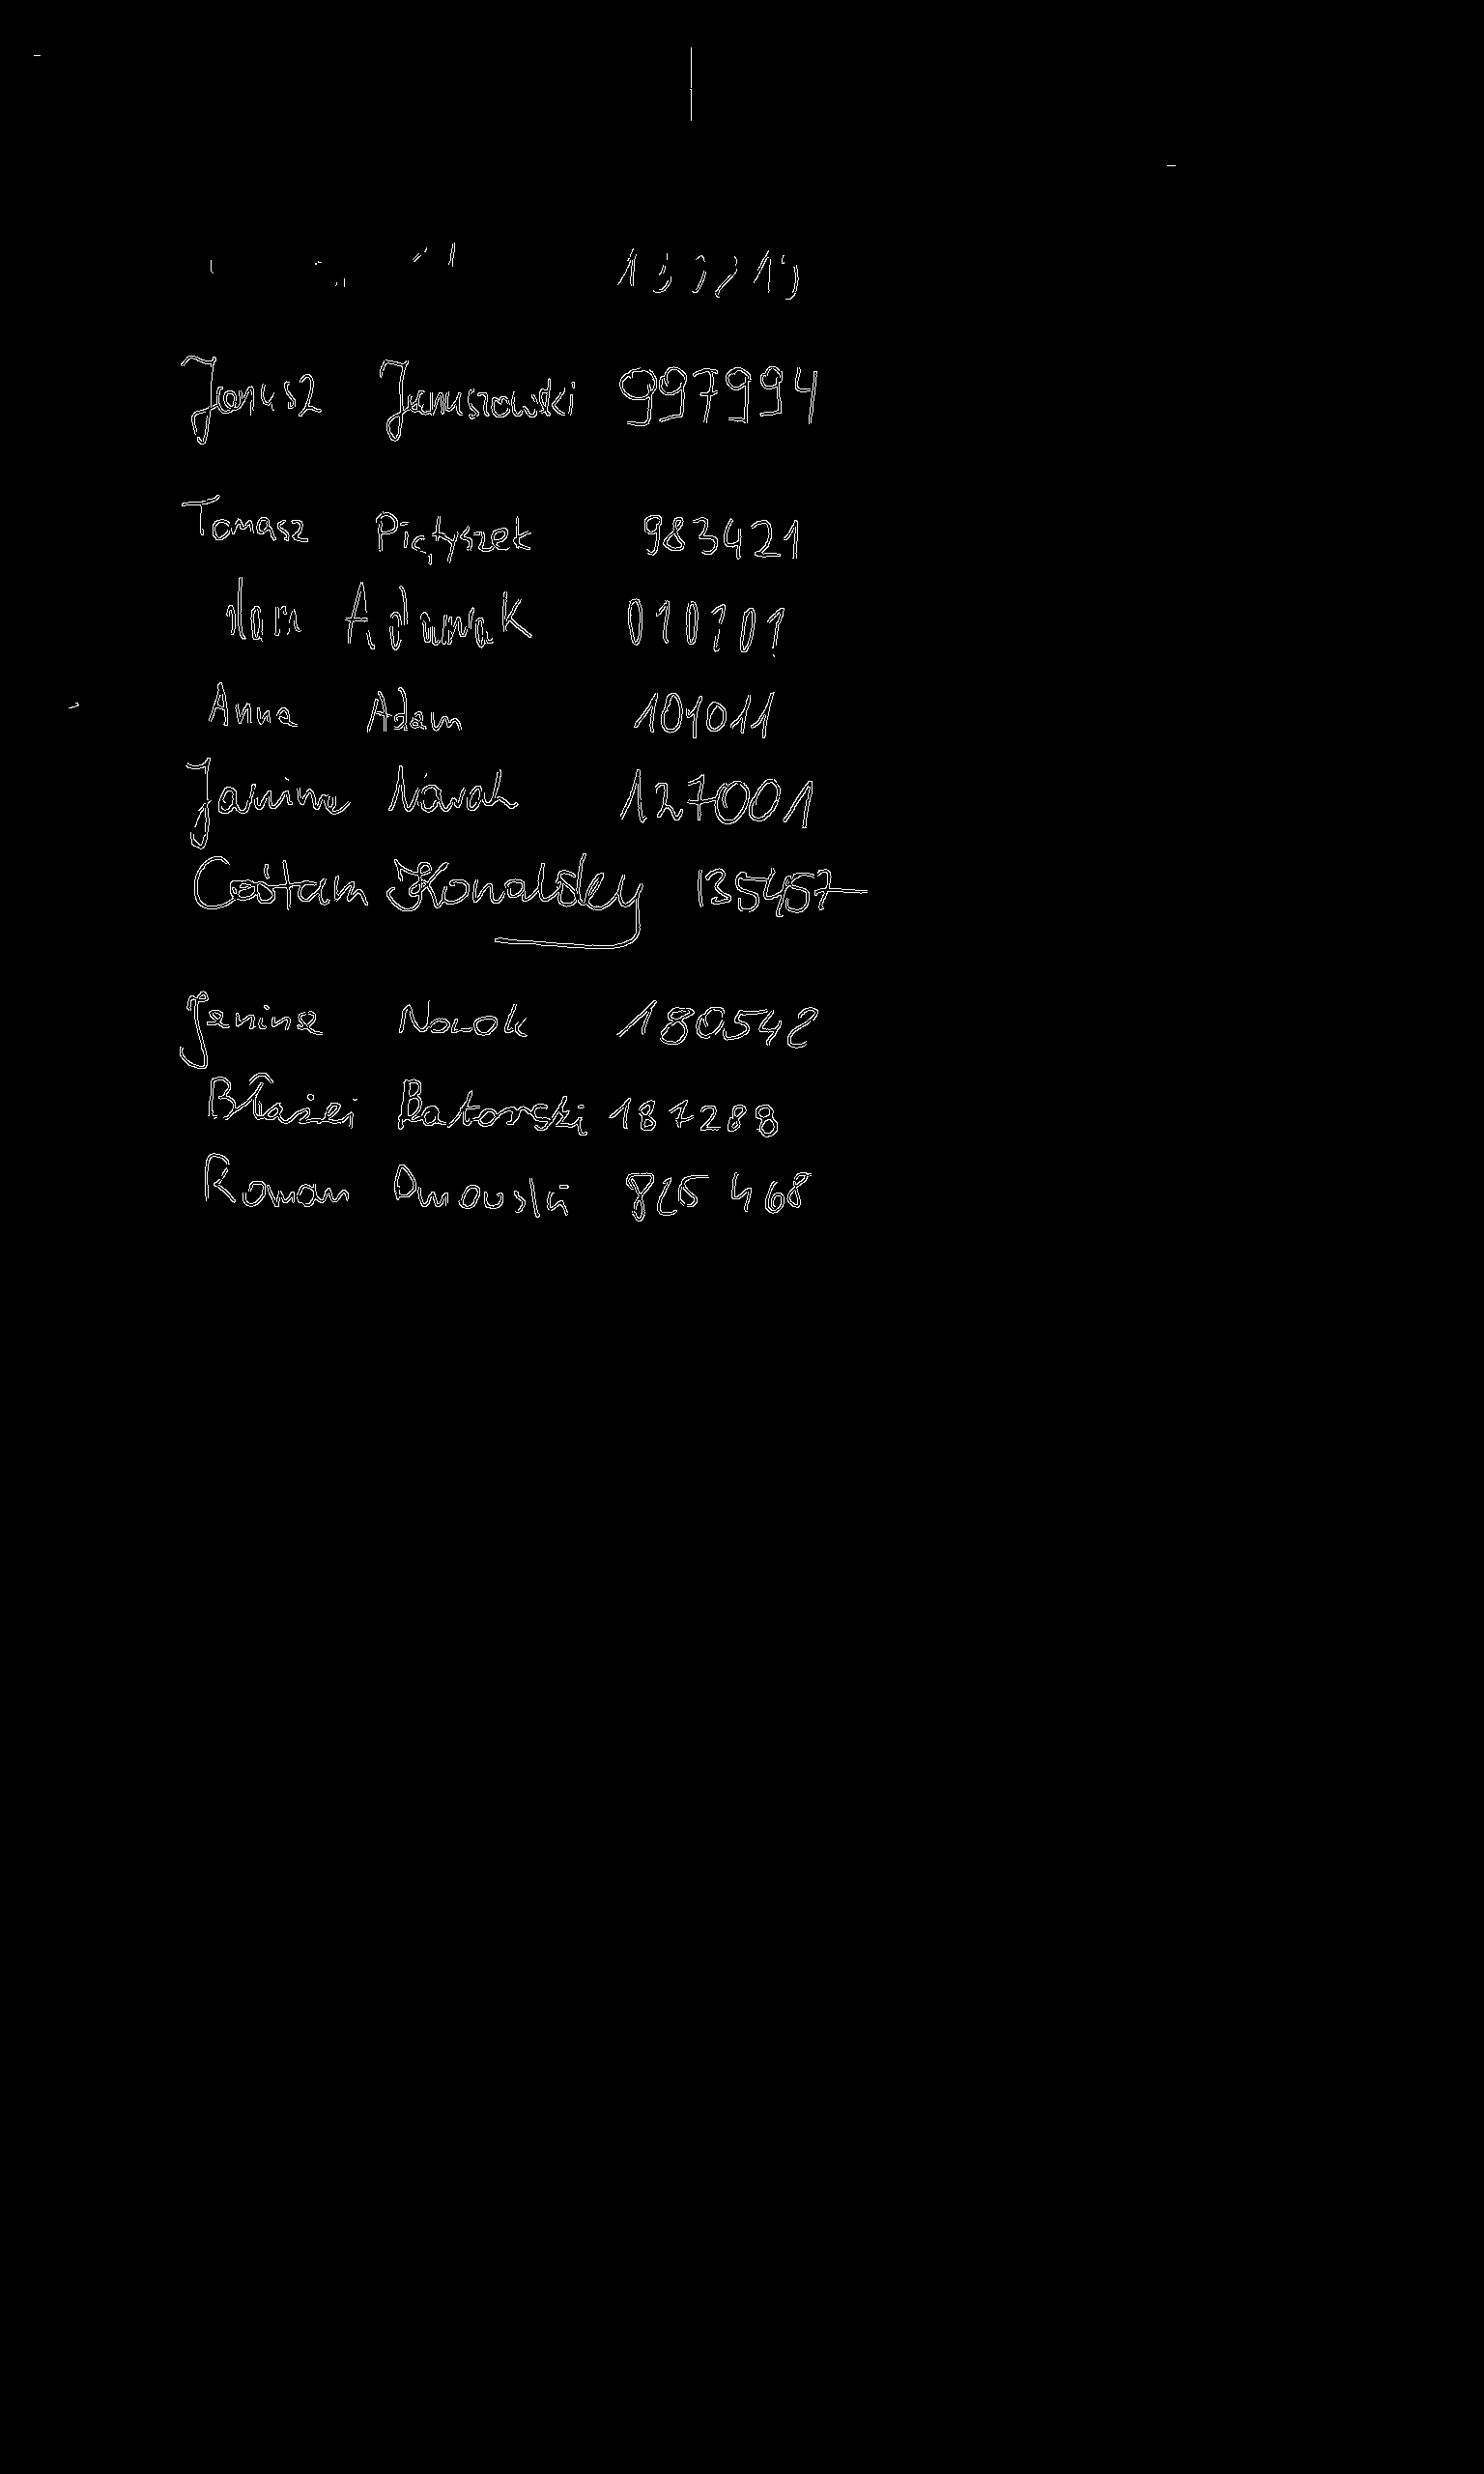 Janusz Januszowski 997994
Tomasz Piątyszek 983421
Adamak
Anna Adam 101011
Janina Nowak 127001
Cośtam Konalsky 135457
Janina Nowak 180542
Błażej Batorski 187288
Roman Dmowski 825468